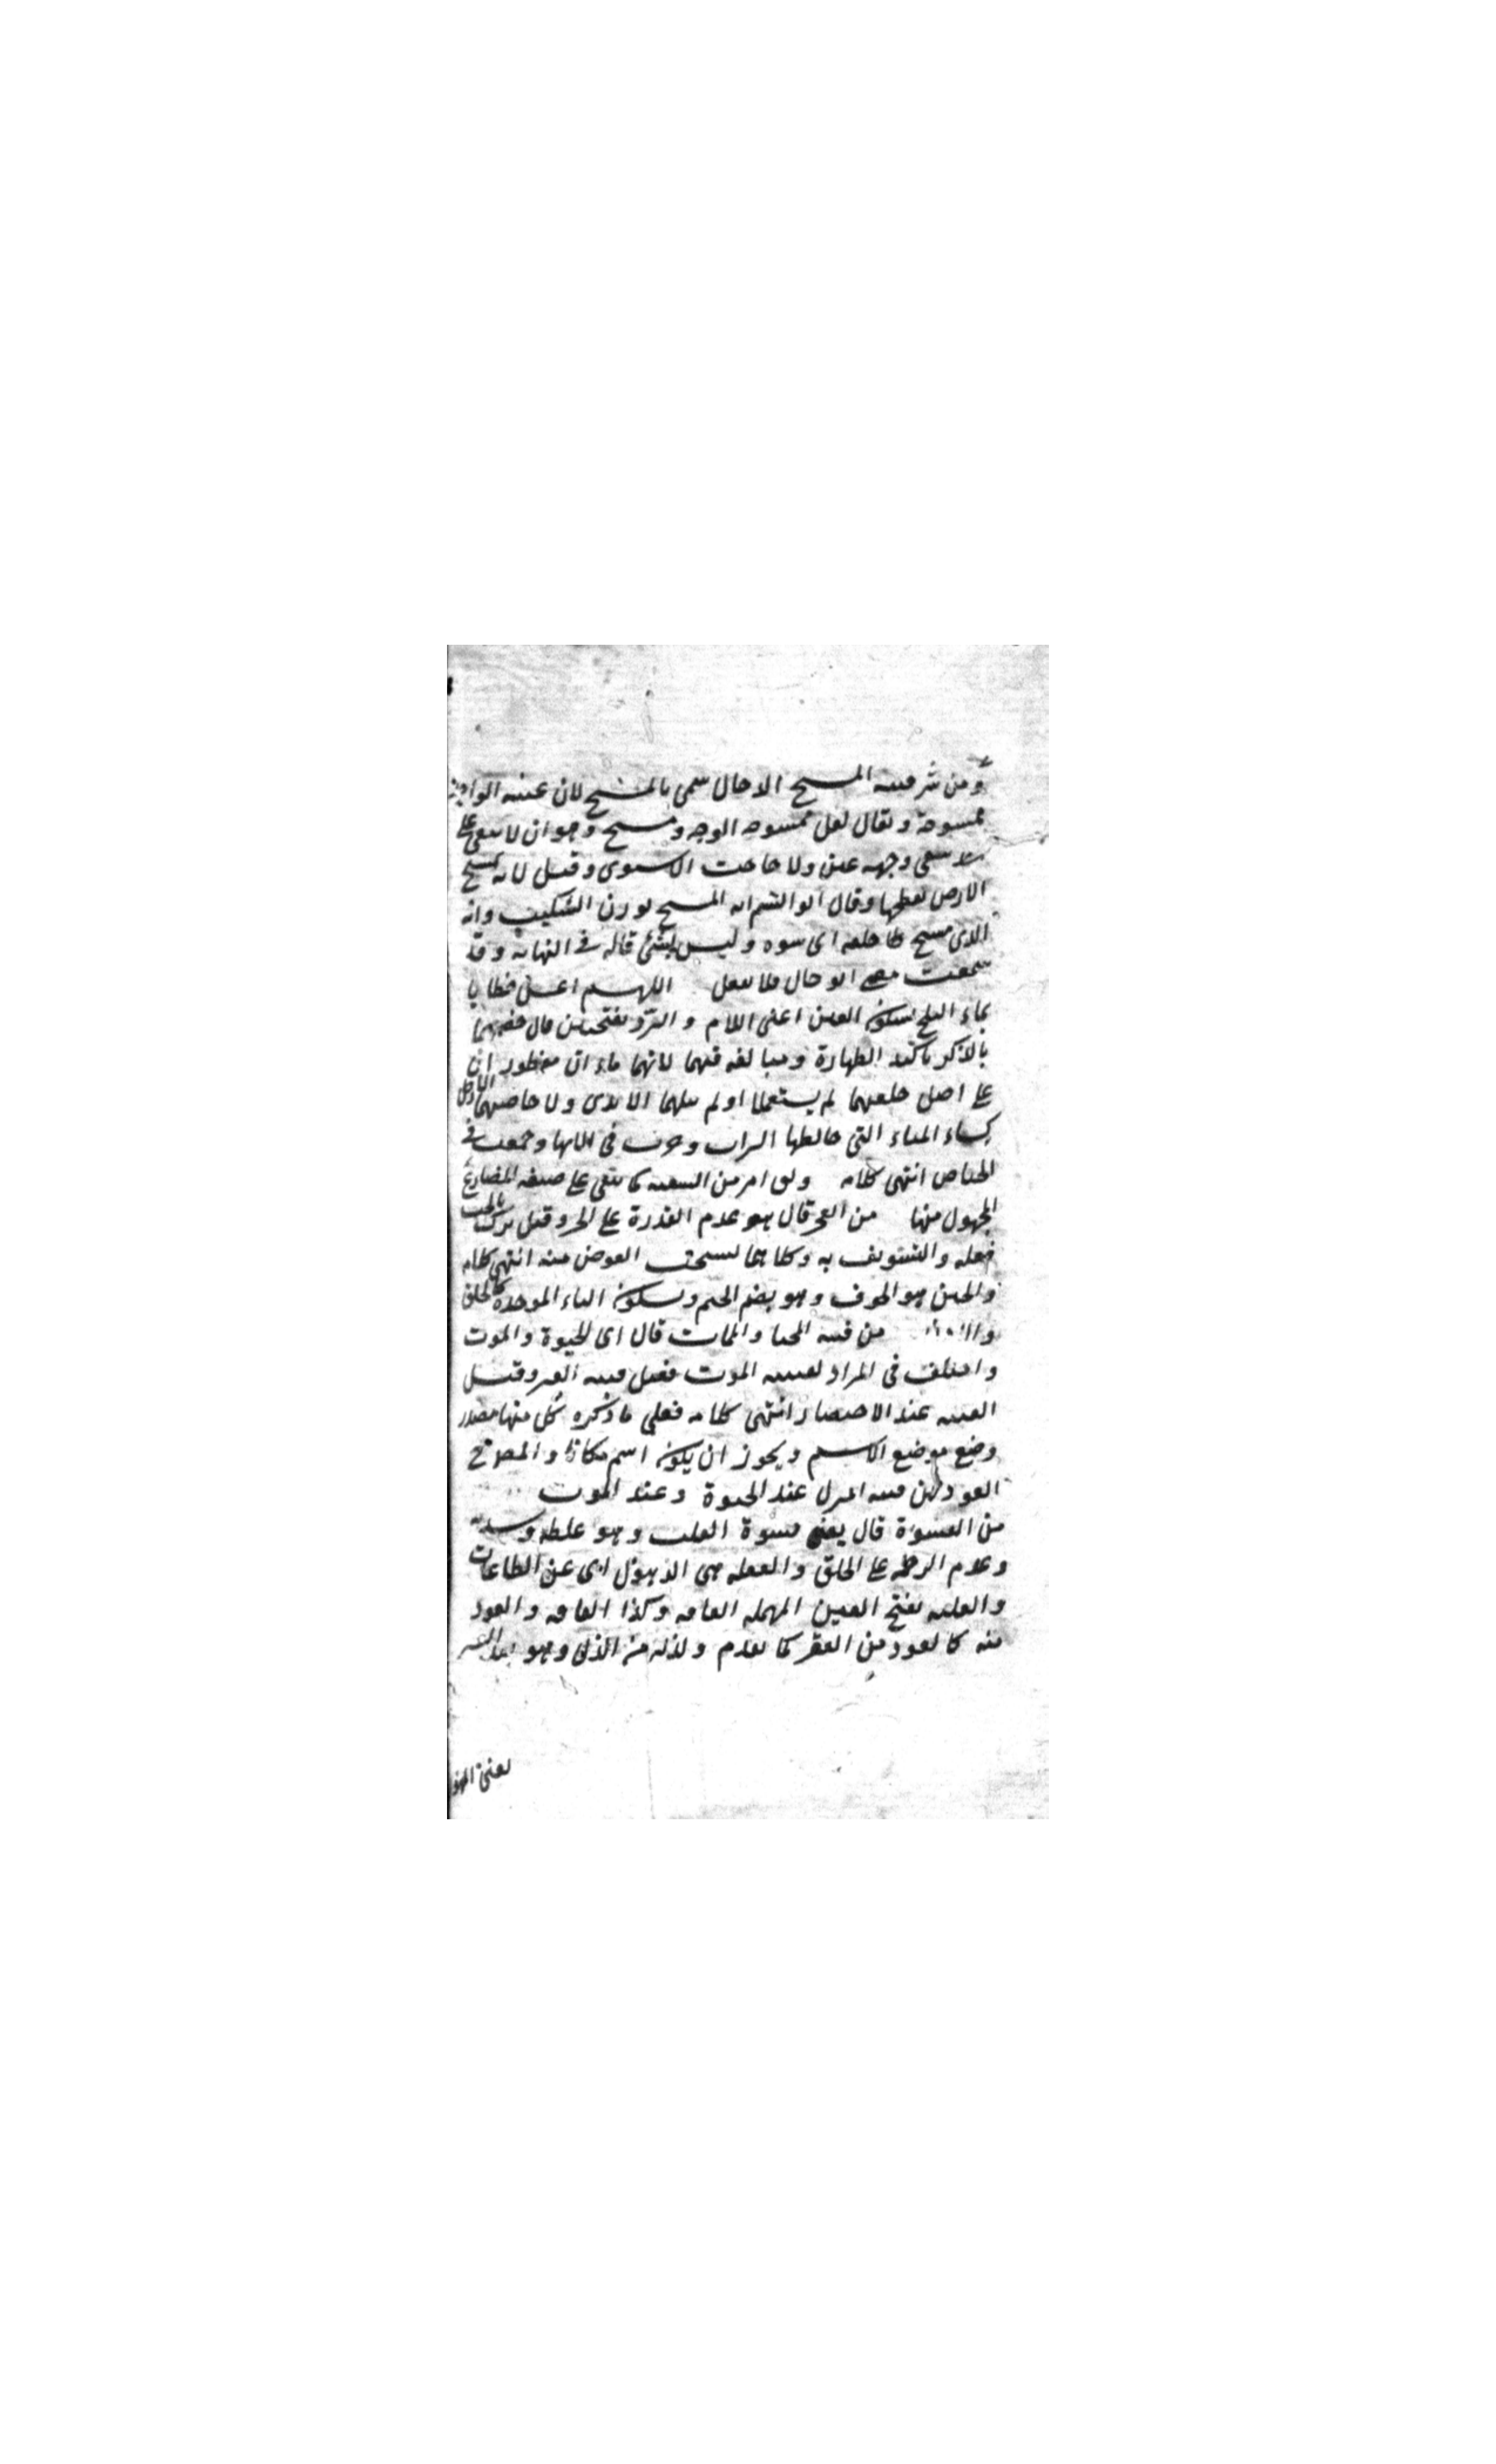 ومن شر فتنة المسيح الدجال سمى بالمسيح لان عينه الواحدة
ممسوحة ويقال رجل ممسوح الوجه ومسيح وهو ان لا يبقى على
شق وجهه عين ولا حاجب الا استوى وقيل لانه يمسح
الارض يقطعها وقال ابو الهيثم انه المسيح بوزن السكيت وانه
الذى مسح خلقه اى شوه وليس بشئ قاله فى النهاية وقد
الدجال اللهم اغسل خطايا
بماء الثلج بسكون العين اعنى اللام والبرد بفتحتين قال خصهما
بالذكر تاكيد الطهارة ومبالغة فيها لانهما ماءان مفطوران
على اصل خلقتهما لم يستعملا ولم ينلهما الايدى ولا خاضتهما الارجل
كساء المياه التى خالطها التراب وجرت فى الانهار وجمعت فى
الحياض انتهى كلامه ونق امر من التنقية كما ينقى على صيغة المضارع
المجهول منها من العجز قال هو عدم القدرة على الخير وقيل ترك ما يجب
فعله والتسويف به وكلاهما يستحق العوض منه انتهى كلامه
والجبن هو الخوف وهو بضم الجيم وسكون الباء الموحدة
من فتنة المحيا والممات قال اى الحيوة والموت
واختلف فى المراد بفتنة الموت فقيل فتنة القبر وقيل
الفتنة عند الاحتضار انتهى كلامه فعلى ما ذكره كل منها مصدر
وضع موضع الاسم ويجوز ان يكون اسم مكان
العوذ من فتنة عند الحيوة وعند الموت
من القسوة قال يعنى قسوة القلب وهو غلظه وشدته
وعدم الرحمة على الخلق والغفلة هى الذهول اى عن الطاعات
والعيلة بفتح العين المهملة الفاقة وكذا الفاقة والعوذ
منه كالعوذ من الفقر كما تقدم والذلة من الذل وهو
يعنى الهوان